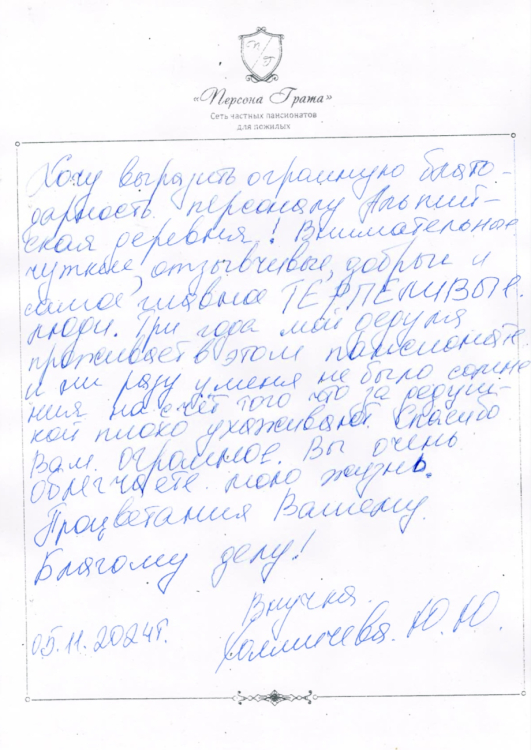 «Персона Грата»
Сеть частных пансионатов
для пожилых
Хочу выразить огромную благо-
дарность персоналу Альпий-
ская деревня! Внимательные
чуткие, отзывчивые, добрые и
самое главное ТЕРПЕЛИВЫЕ
люди. Три года мой дедуля
проживает в этом пансионате.
и ни разу у меня не было сомне
ния на счёт того что за дедуш-
кой плохо ухаживают. Спасибо
Вам огромное. Вы очень
облегчаете мою жизнь.
Процветания Вашему
Благому делу!
Внучка
05.11.2024г.
Ю.Ю.